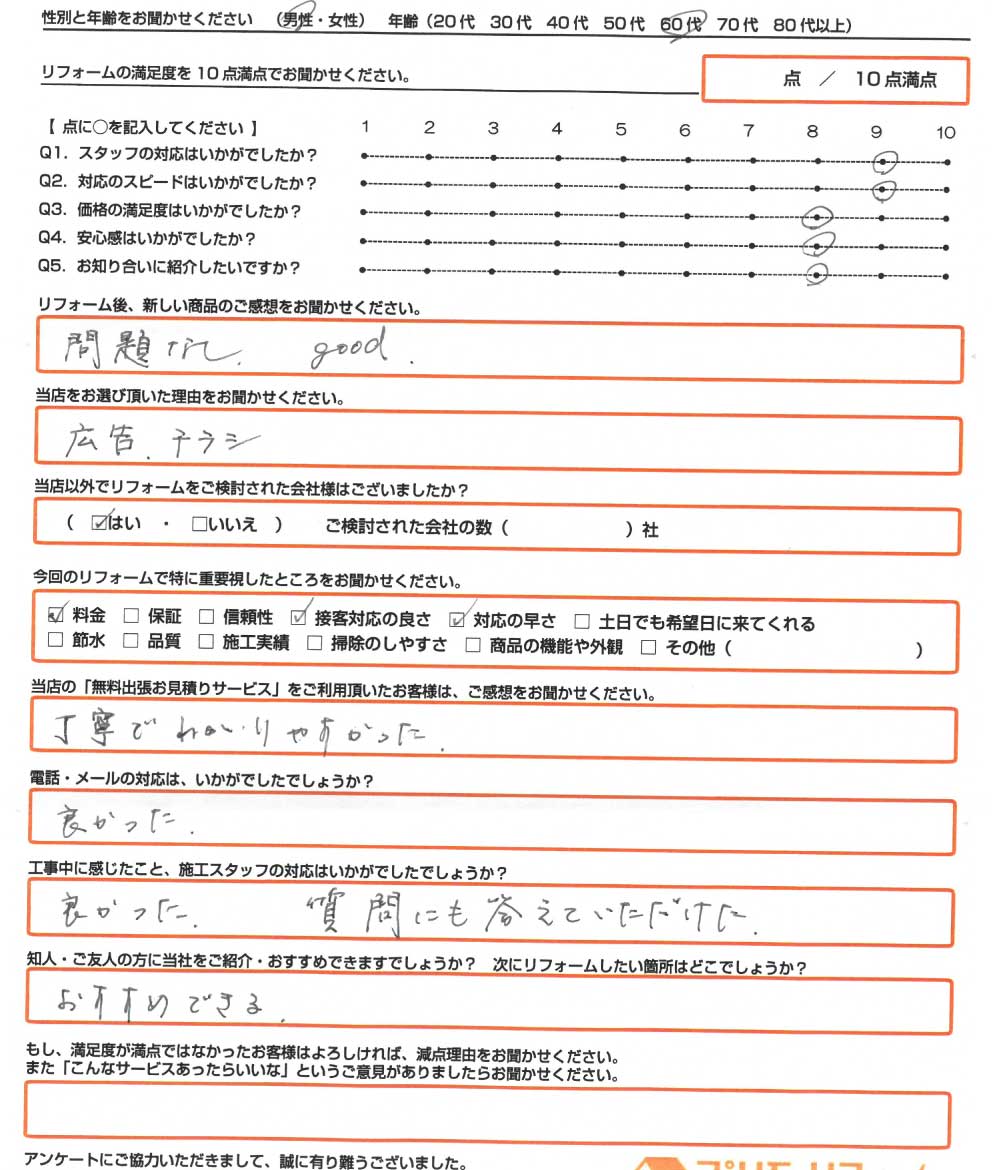 性別と年齢をお聞かせください　（男性・女性）　年齢（20代　30代　40代　50代　60代　70代　80代以上）
リフォームの満足度を10点満点でお聞かせください。
点　／　10点満点
【 点に○を記入してください 】　1　2　3　4　5　6　7　8　9　10
Q1. スタッフの対応はいかがでしたか？
Q2. 対応のスピードはいかがでしたか？
Q3. 価格の満足度はいかがでしたか？
Q4. 安心感はいかがでしたか？
Q5. お知り合いに紹介したいですか？
リフォーム後、新しい商品のご感想をお聞かせください。
問題なし.　good.
当店をお選び頂いた理由をお聞かせください。
広告.チラシ
当店以外でリフォームをご検討された会社様はございましたか？
（ ☑はい　・　□いいえ ）　ご検討された会社の数（　　　　）社
今回のリフォームで特に重要視したところをお聞かせください。
☑ 料金　□ 保証　□ 信頼性　☑ 接客対応の良さ　☑ 対応の早さ　□ 土日でも希望日に来てくれる
□ 節水　□ 品質　□ 施工実績　□ 掃除のしやすさ　□ 商品の機能や外観　□ その他（　　　　）
当店の「無料出張お見積りサービス」をご利用頂いたお客様は、ご感想をお聞かせください。
丁寧でわかりやすかった.
電話・メールの対応は、いかがでしたでしょうか？
良かった.
工事中に感じたこと、施工スタッフの対応はいかがでしたでしょうか？
良かった.　質問にも答えていただけた.
知人・ご友人の方に当社をご紹介・おすすめできますでしょうか？　次にリフォームしたい箇所はどこでしょうか？
おすすめできる.
もし、満足度が満点ではなかったお客様はよろしければ、減点理由をお聞かせください。
また「こんなサービスあったらいいな」というご意見がありましたらお聞かせください。
アンケートにご協力いただきまして、誠に有り難うございました。